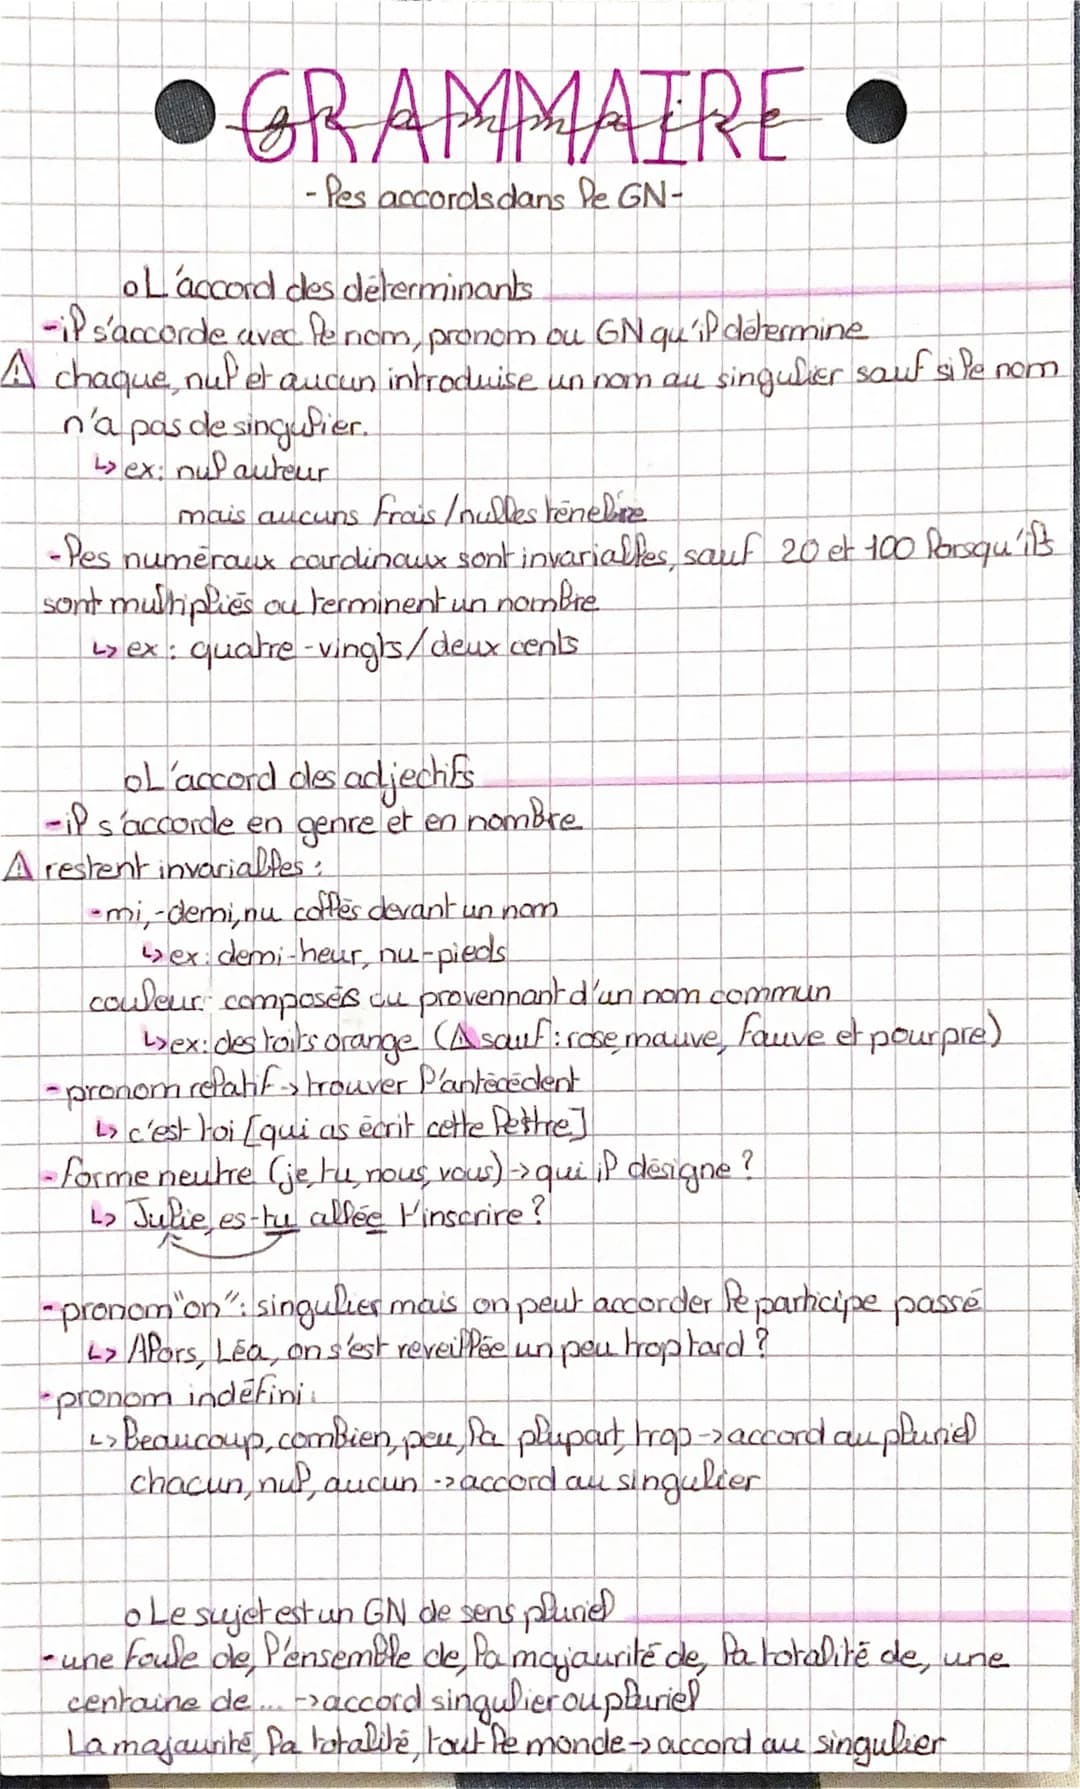 GRAMMAIRE
grammaire
- les accords dans le GN -
o L'accord des déterminants
- il s'accorde avec le nom, pronom ou GN qu'il détermine
⚠ chaque, nul et aucun introduise un nom au singulier sauf si le nom
n'a pas de singulier.
↳ ex: nul auteur
mais aucuns frais / nulles ténèbre
- les numéraux cardinaux sont invariables, sauf 20 et 100 lorsqu'ils
sont multipliés ou terminent un nombre
↳ ex : quatre-vingts / deux cents
o L'accord des adjectifs
- il s'accorde en genre et en nombre
⚠ restent invariables :
- mi, -demi, nu collés devant un nom
↳ ex: demi-heur, nu-pieds
couleur: composés ou provennant d'un nom commun
↳ ex: des toits orange (⚠ sauf : rose, mauve, fauve et pourpre)
- pronom relatif -> trouver l'antécédent
↳ c'est toi [qui as écrit cette lettre]
- forme neutre (je, tu, nous, vous) -> qui il désigne ?
↳ Julie, es-tu allée t'inscrire ?
- pronom "on" : singulier mais on peut accorder le participe passé
↳ Alors, Léa, on s'est reveillée un peu trop tard ?
- pronom indéfini :
↳ Beaucoup, combien, peu, la plupart, trop -> accord au pluriel
chacun, nul, aucun -> accord au singulier
o Le sujet est un GN de sens pluriel
- une foule de, l'ensemble de, la majaurité de, la totalité de, une
centaine de ... -> accord singulier ou pluriel
La majaurité, la totalité, tout le monde -> accord au singulier